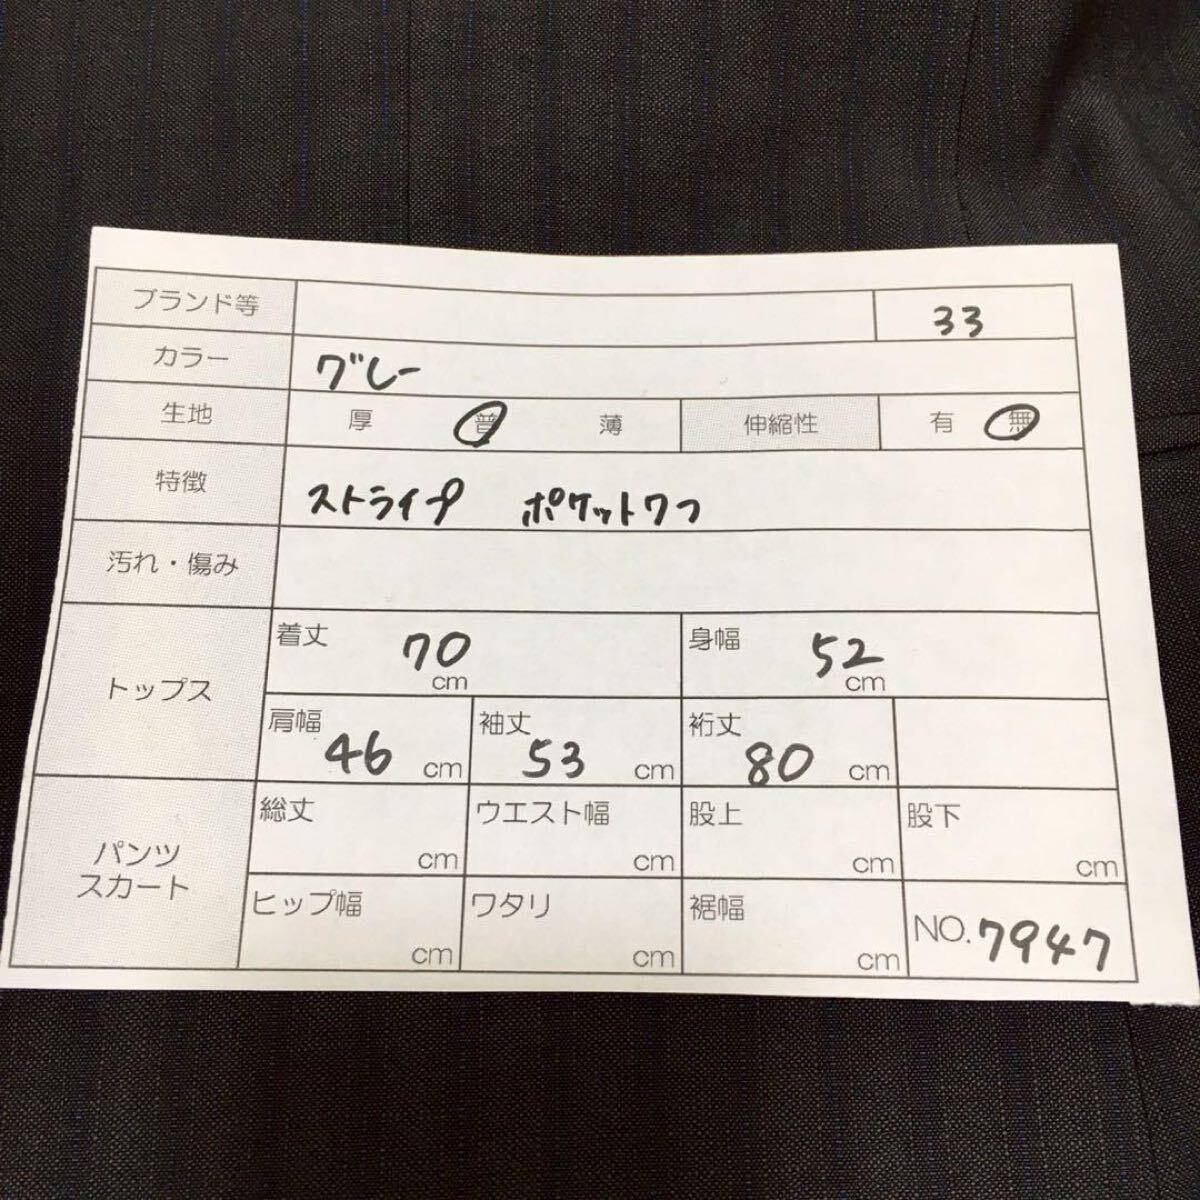 ブランド等 33
カラー グレー
生地 厚 普 薄 伸縮性 有 無
特徴 ストライプ ポケット7つ
汚れ・傷み
トップス
着丈 70 cm 身幅 52 cm
肩幅 46 cm 袖丈 53 cm 裄丈 80 cm
パンツ
スカート
総丈 cm ウエスト幅 cm 股上 cm 股下 cm
ヒップ幅 cm ワタリ cm 裾幅 cm NO.7947